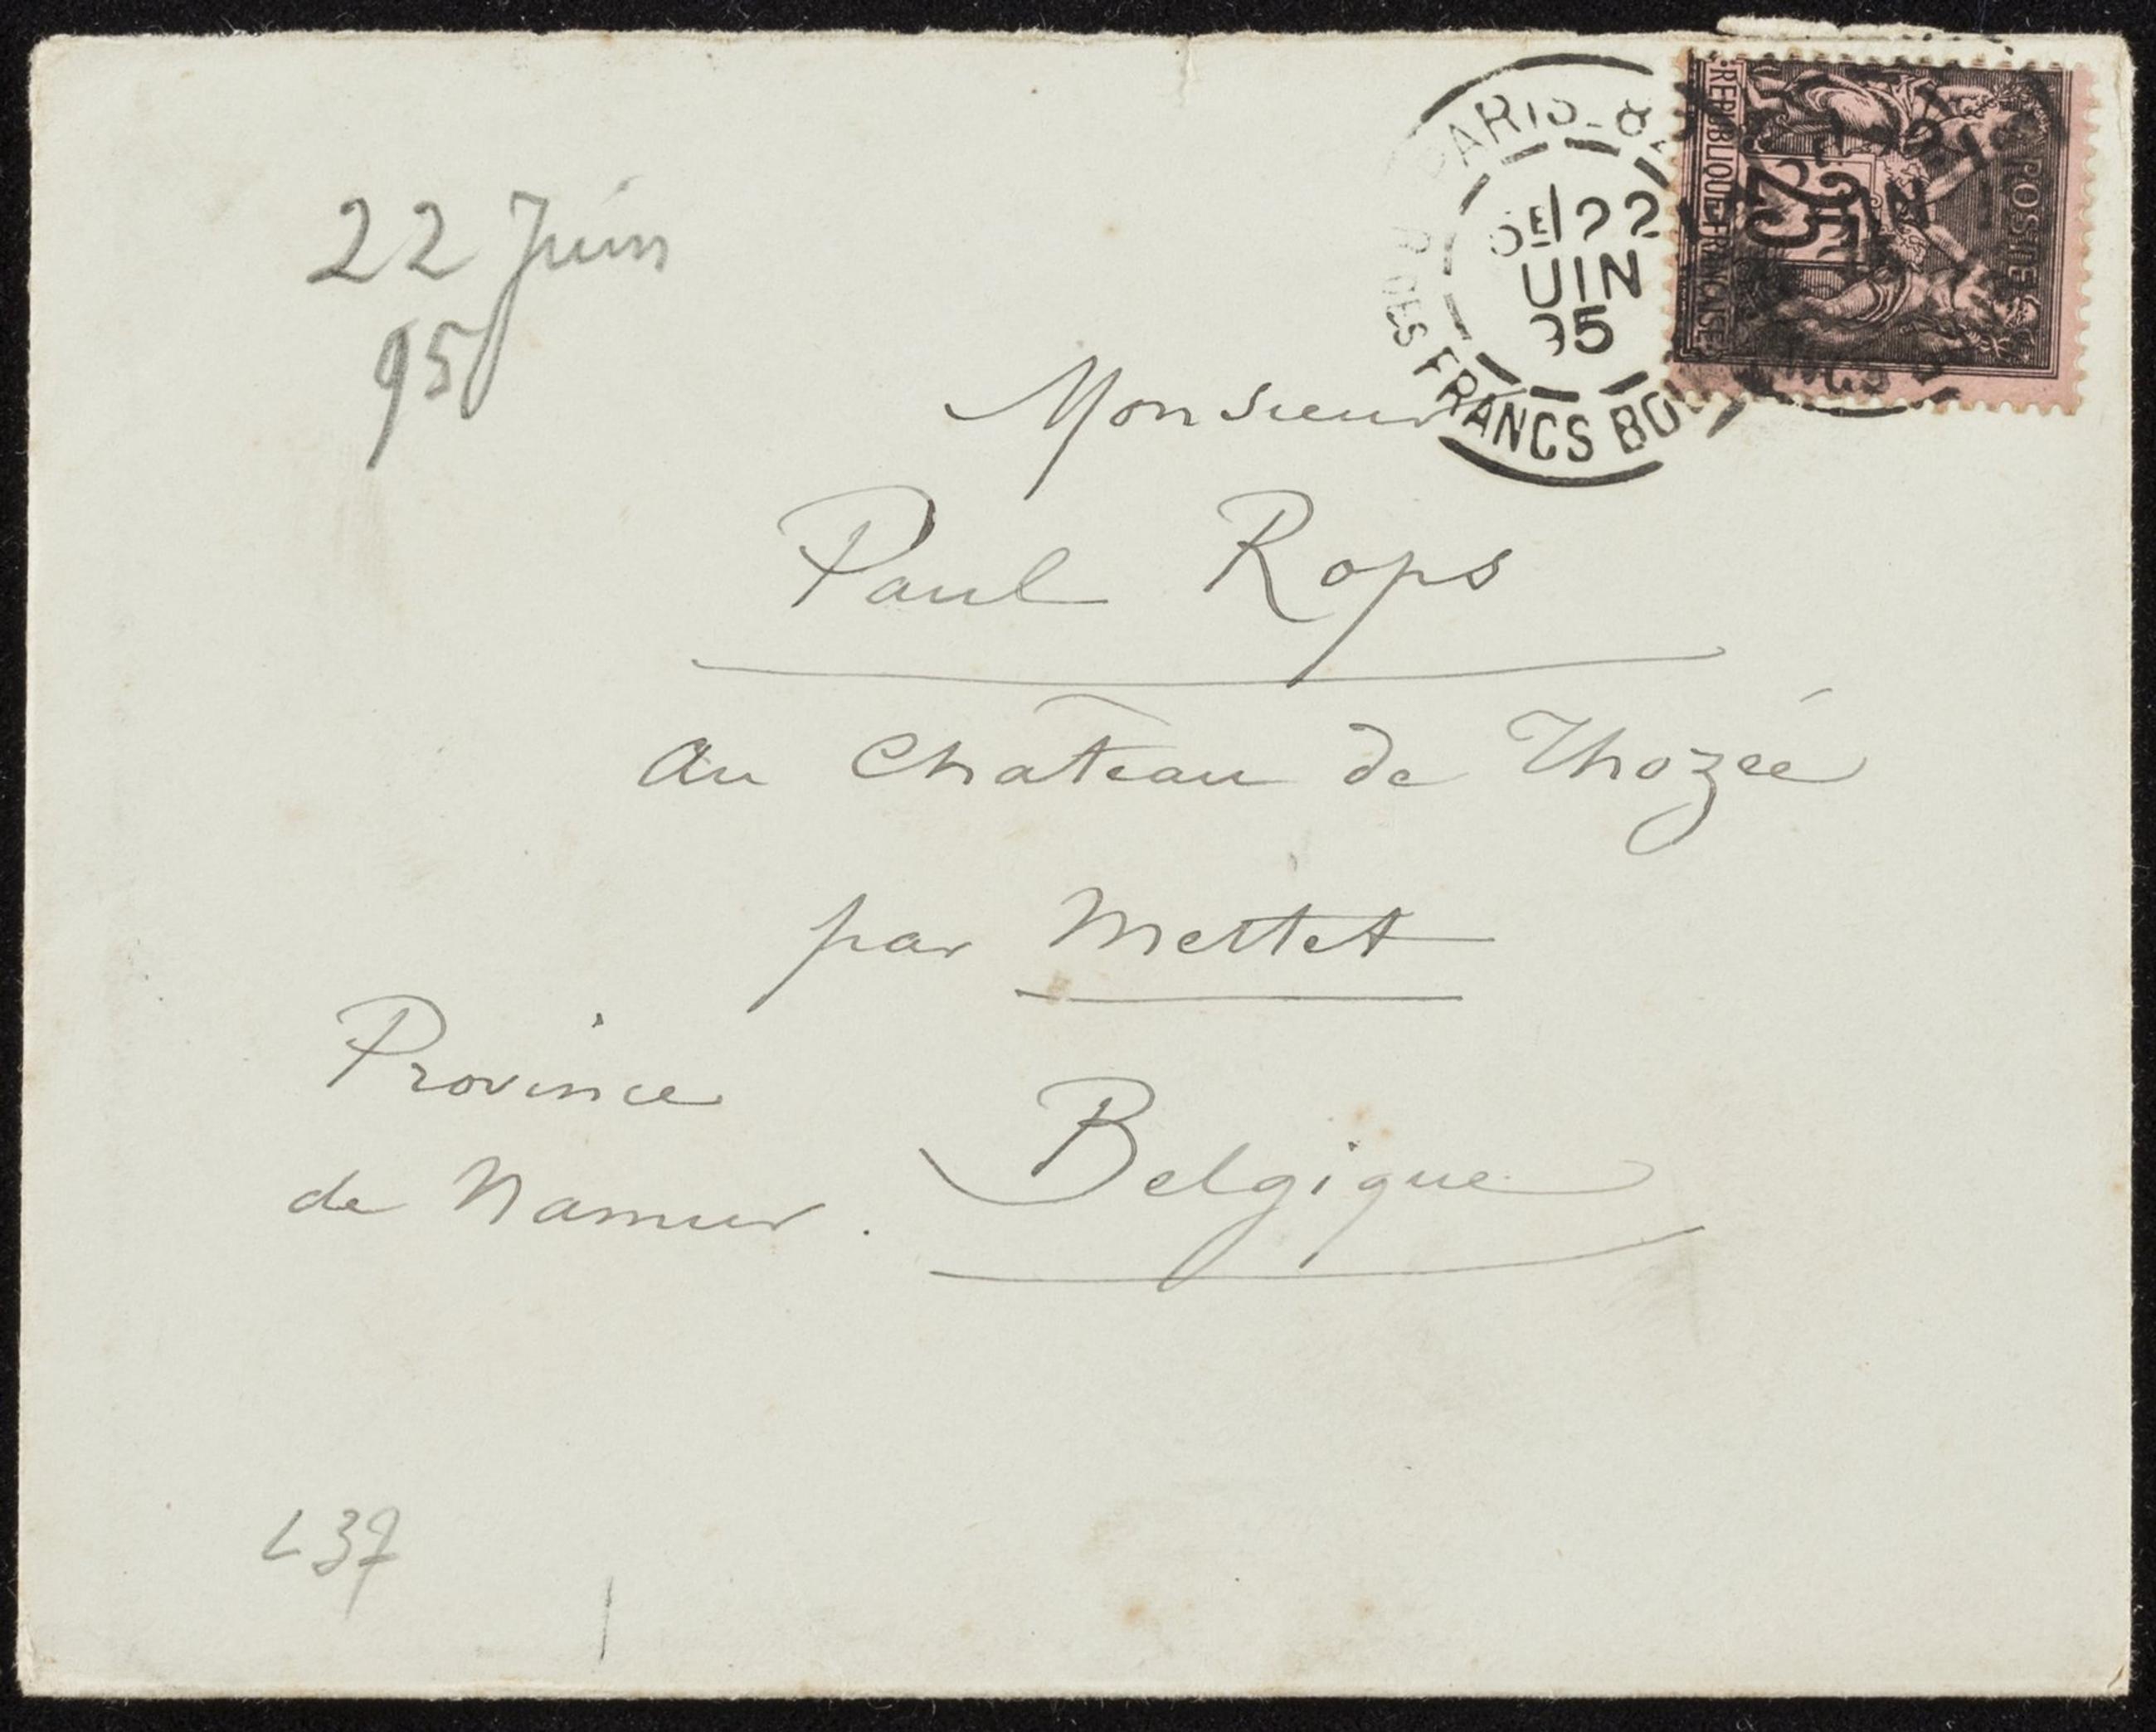 22 Juin
95
PARIS_82
5E 22
UIN
95
DES FRANCS BO
REPUBLIQUE FRANCAISE
25
POSTE
Monsieur
Paul Rops
au Château de Thozée
par Mettet
Province
de Namur.
Belgique
L37